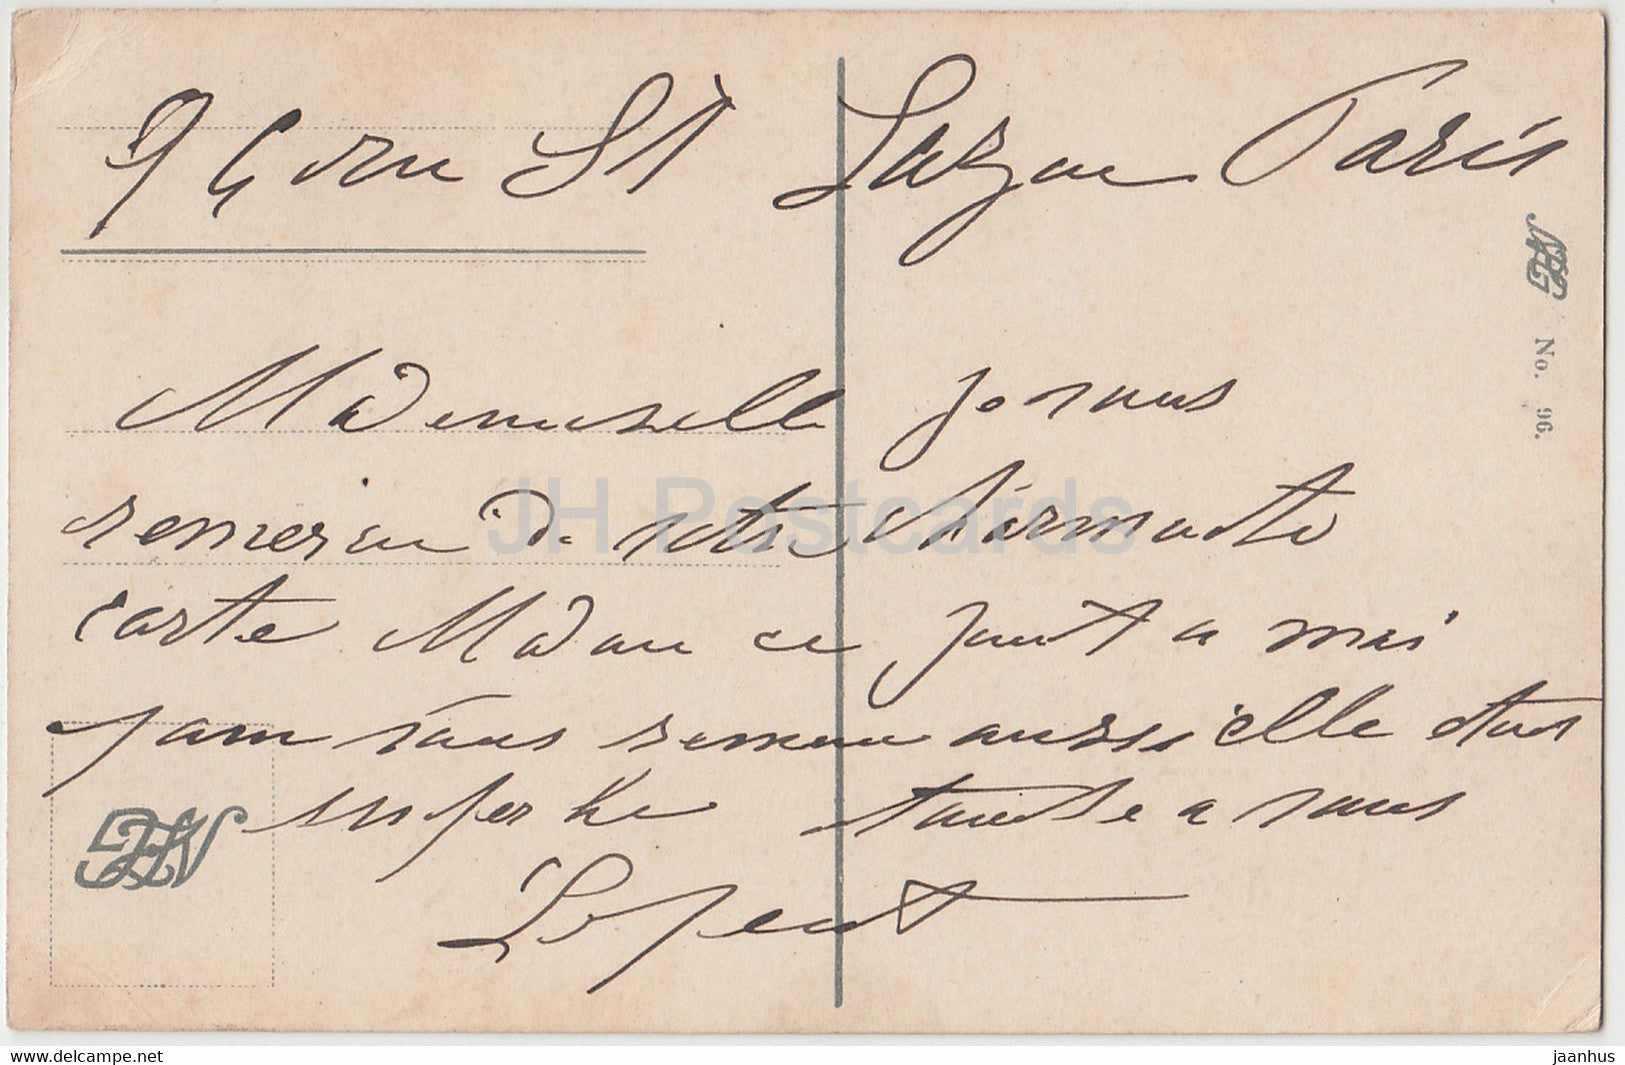 94 rue St Lazare Paris
Mademoiselle je vous
remercie de votre charmante
carte Madame se joint a moi
pour vous remercier aussi elle
a vous
No. 96.
JH Postcards
www.delcampe.net
jaanhus